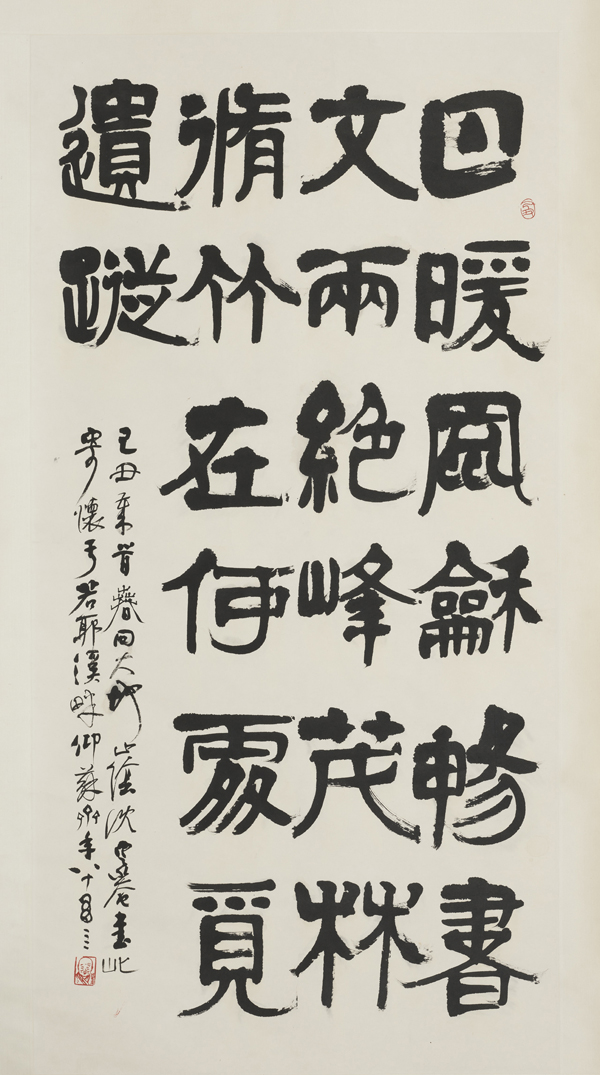 日暖風龢暢書
文兩絕峰茂林
脩竹在何處覓
遺蹤
己丑首春回大地山陰沈定庵書此
寄懷于若耶溪畔仰蘇年八十有三